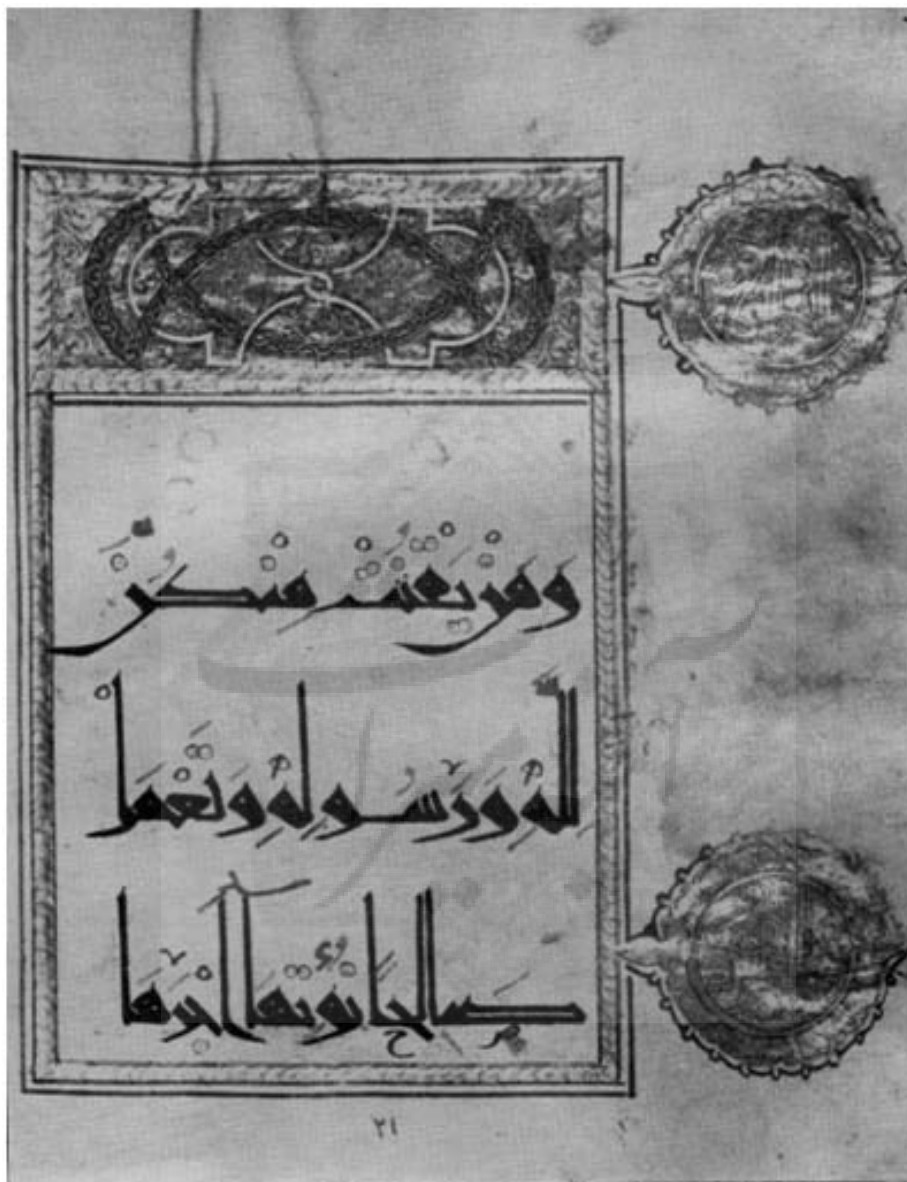 وَمَنْ يَقْنُتْ مِنْكُنَّ
لِلَّهِ وَرَسُولِهِ وَتَعْمَلْ
صَالِحًا نُؤْتِهَا أَجْرَهَا
٢١